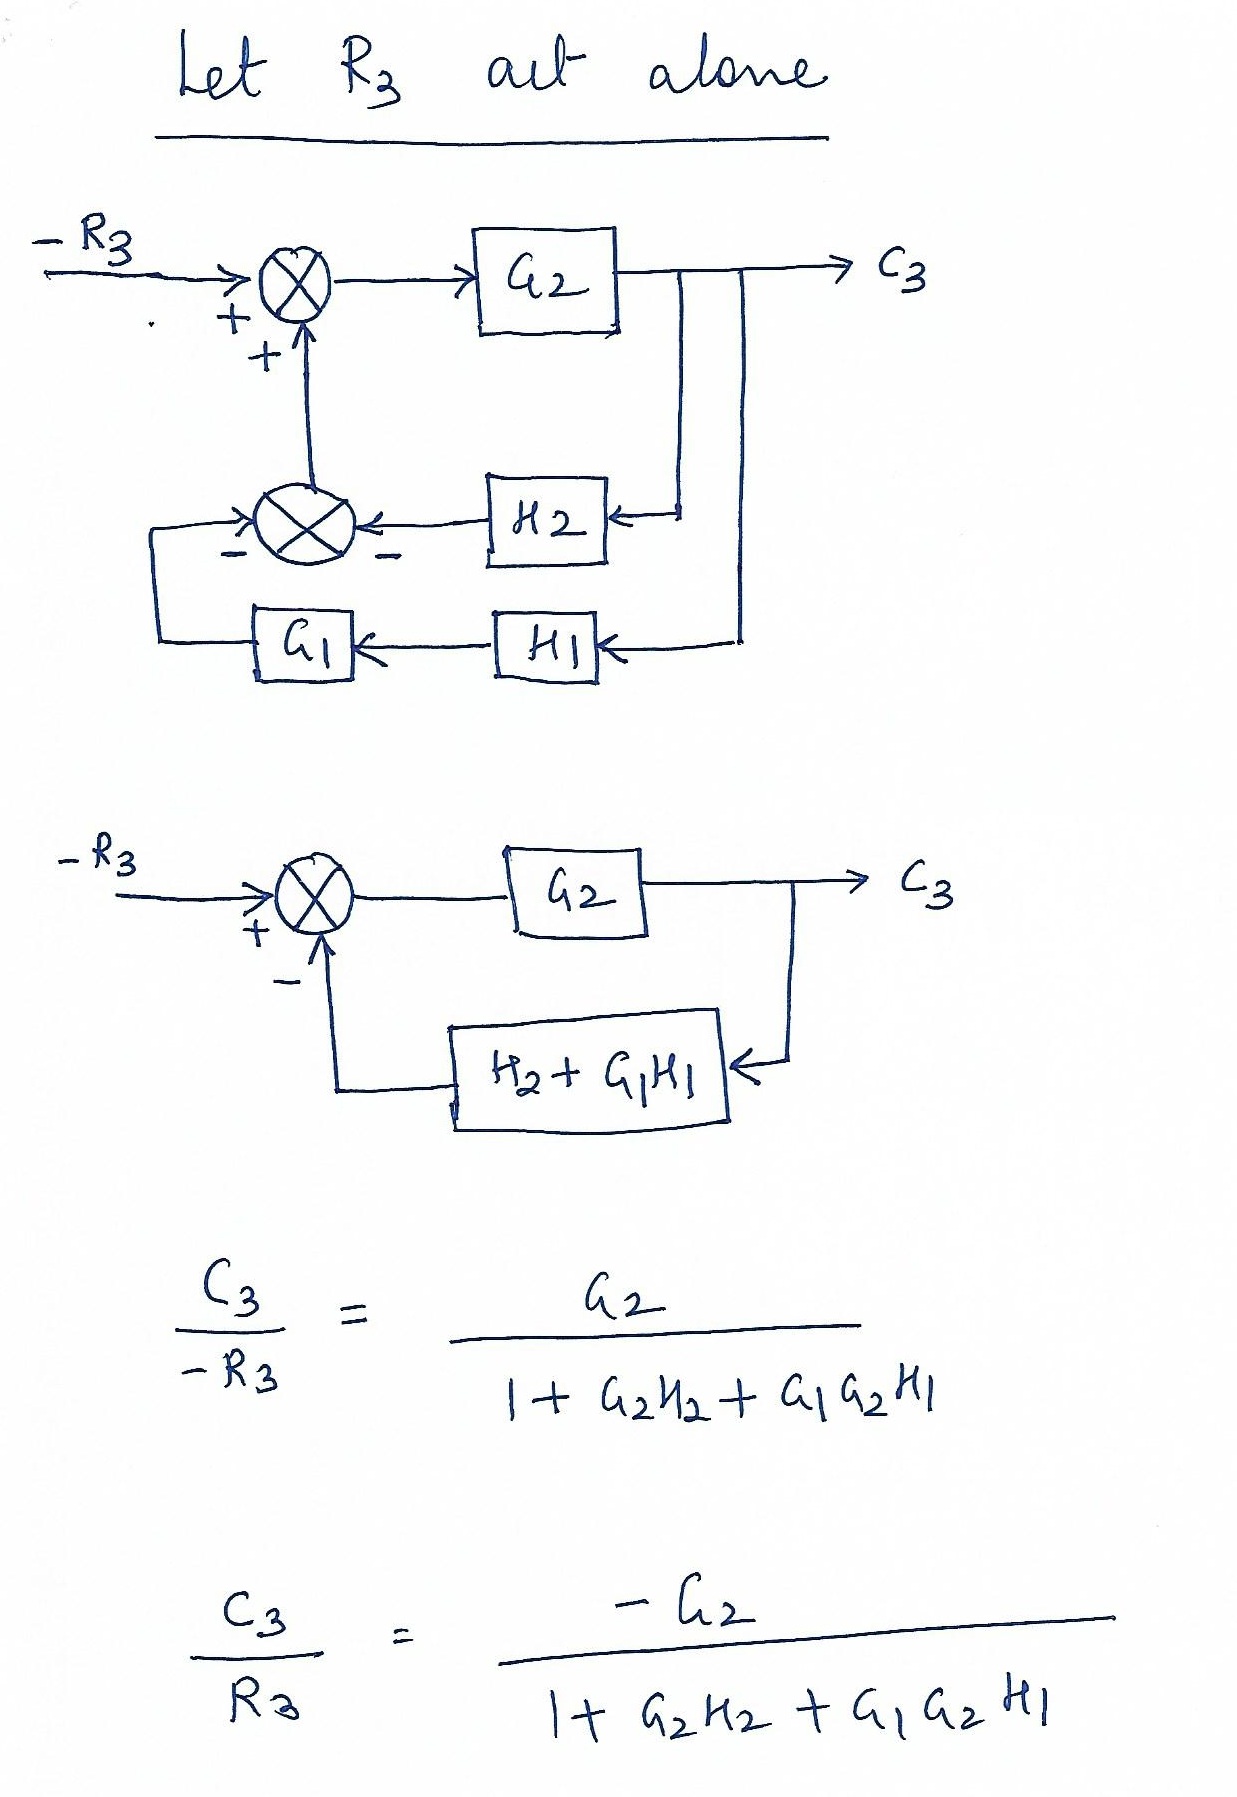 Let R3 act alone
- R3
G2
C3
+
+
H2
-
-
G1
H1
- R3
G2
C3
+
-
H2 + G1H1
C3 / -R3 = G2 / 1 + G2H2 + G1G2H1
C3 / R3 = -G2 / 1 + G2H2 + G1G2H1